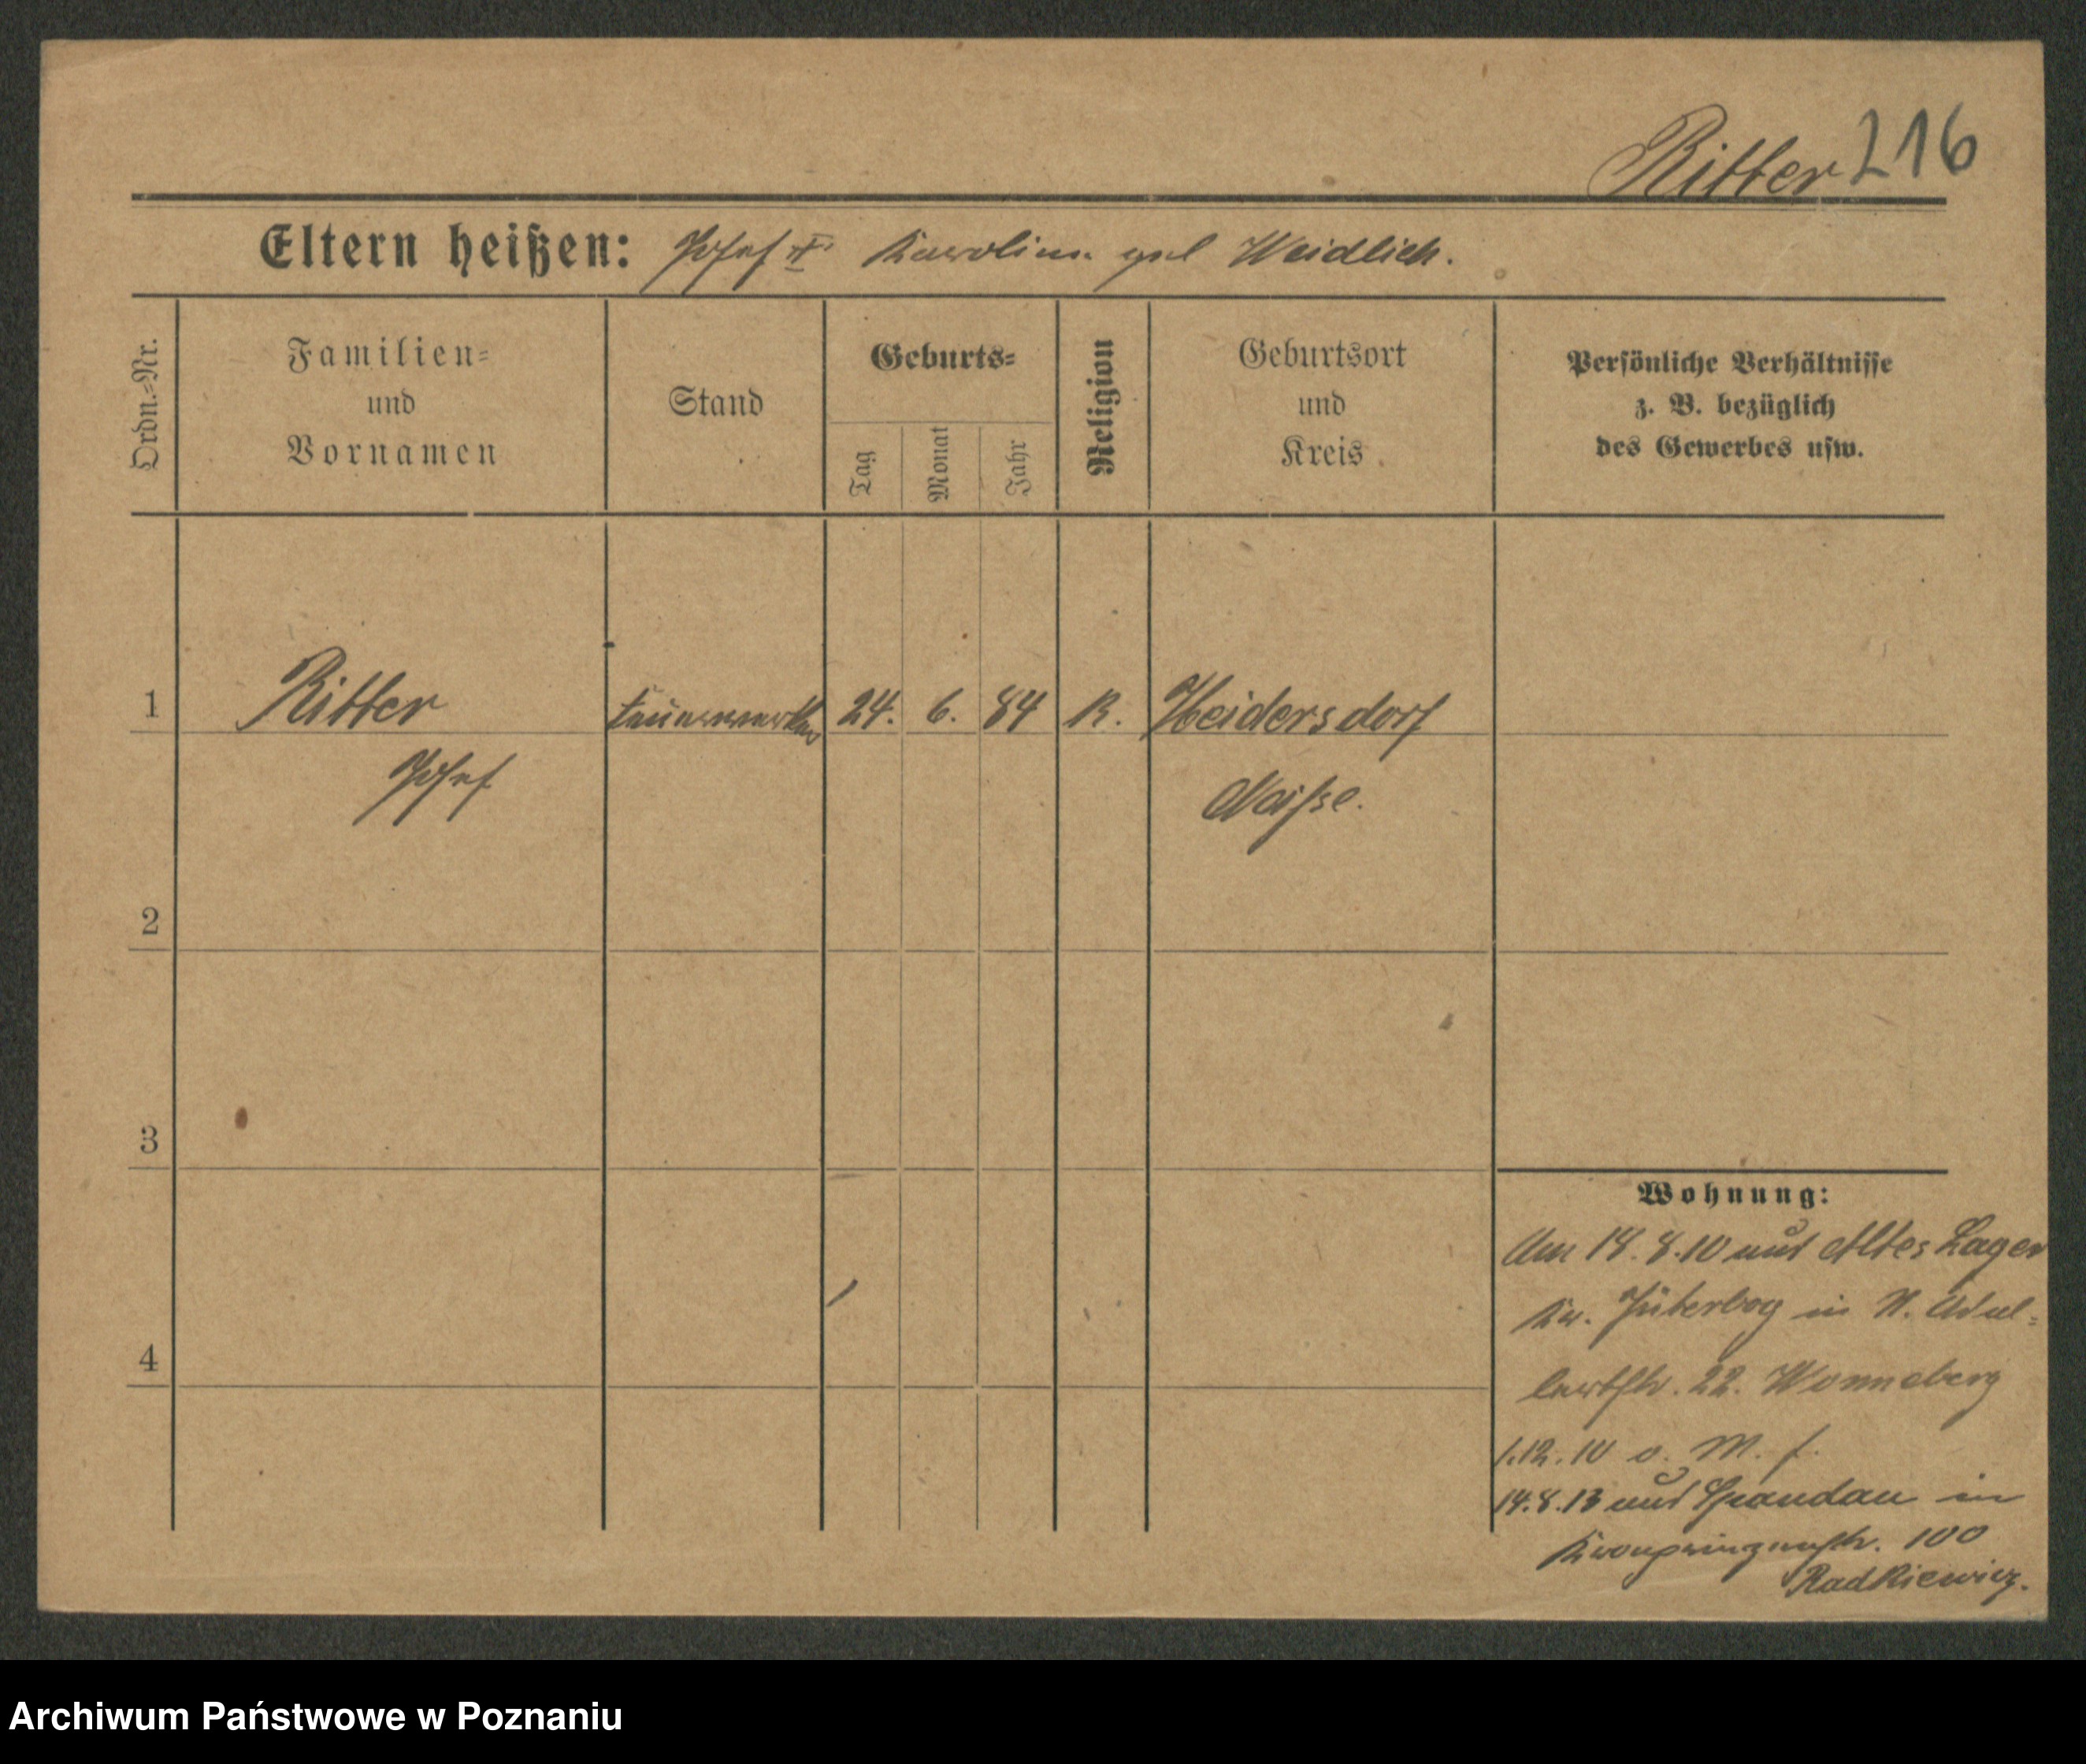 Ritter 216
Eltern heißen: Josef u. Karolina geb Weidlich.
Ordn.=Nr.
Familien=
und
Vornamen
Stand
Geburts=
Tag
Monat
Jahr
Religion
Geburtsort
und
Kreis
Persönliche Verhältnisse
z. B. bezüglich
des Gewerbes usw.
1 Ritter Feuerwerker 24. 6. 84 K. Heidersdorf
Josef Neisse.
2
3
4
Wohnung:
Am 14.8.10 aus Altes Lager
Kr. Jüterbog in
22. Wonneberg
1.12.10 o. M. f.
14.8.13 aus Spandau in
Kronprinzenstr. 100
Radkiewicz.
Archiwum Państwowe w Poznaniu